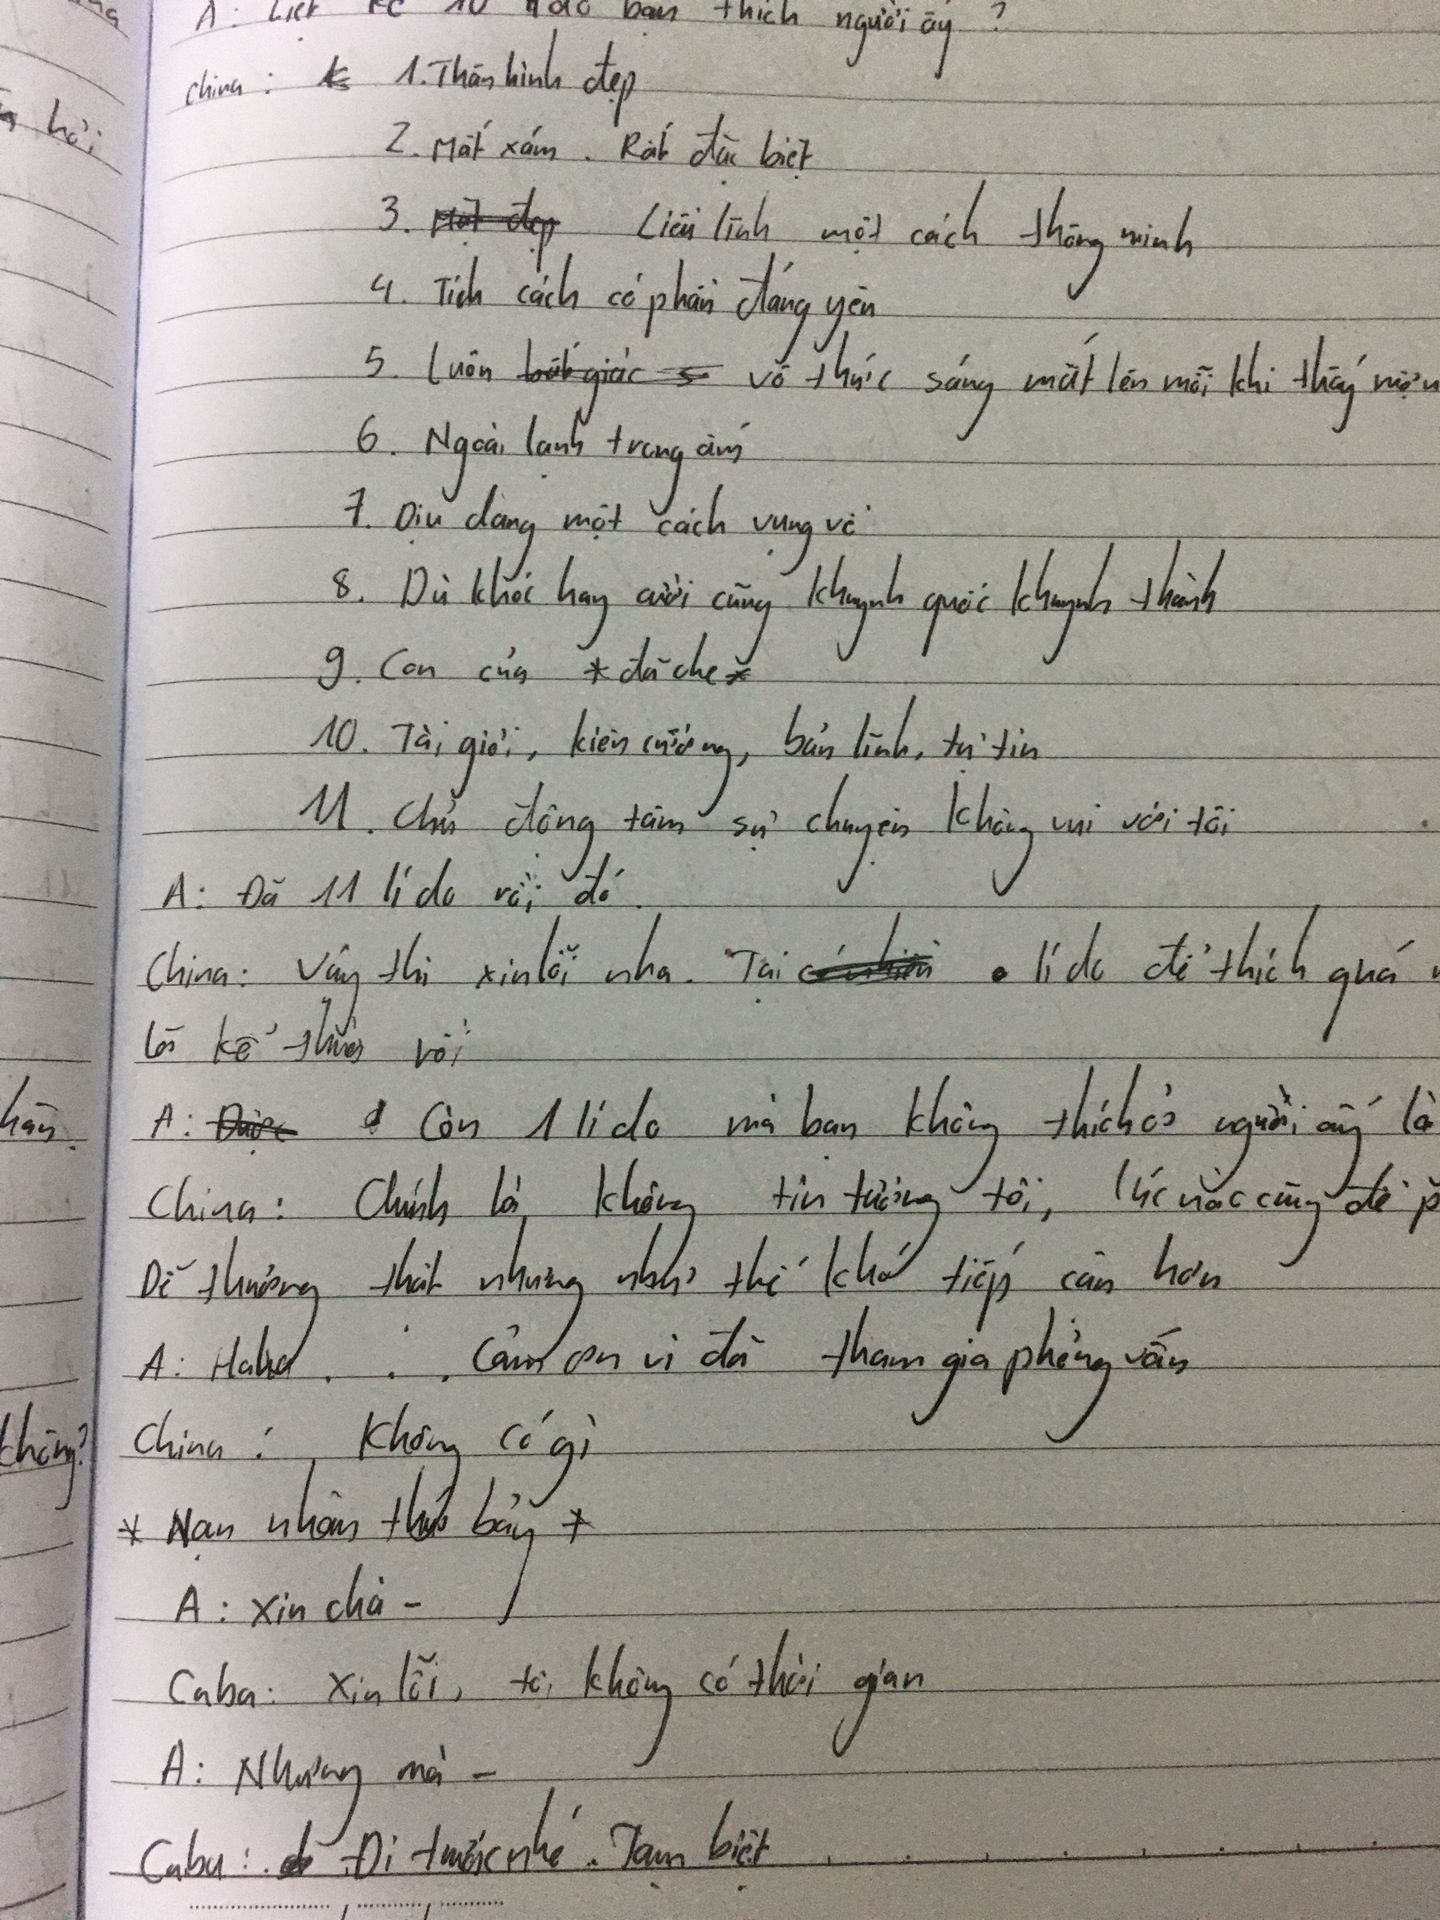 A: Liệt kê 10 lí do bạn thích người ấy?
China: 1. Thân hình đẹp
2. Mắt xám. Rất đặc biệt
3. Liều lĩnh một cách thông minh
4. Tính cách có phần đáng yêu
5. Luôn vô thức sáng mắt lên mỗi khi thấy
6. Ngoài lạnh trong ấm
7. Dịu dàng một cách vụng về
8. Dù khóc hay cười cũng khuynh quốc khuynh thành
9. Con của *đã che*
10. Tài giỏi, kiên cường, bản lĩnh, tự tin
11. Chủ động tâm sự chuyện không vui với tôi
A: Đã 11 lí do rồi đó.
China: Vậy thì xin lỗi nha. Tại lí do để thích quá
lỡ kể thừa rồi
A: Còn 1 lí do mà bạn không thích ở người ấy là
China: Chính là không tin tưởng tôi, lúc nào cũng đề
Dễ thương thật nhưng như thế khó tiếp cận hơn
A: Haha . . . Cảm ơn vì đã tham gia phỏng vấn
China: Không có gì
* Nạn nhân thứ bảy *
A: Xin chà -
Caba: Xin lỗi, tôi không có thời gian
A: Nhưng mà -
Caba: Đi trước nhé. Tạm biệt
hỏi
không?